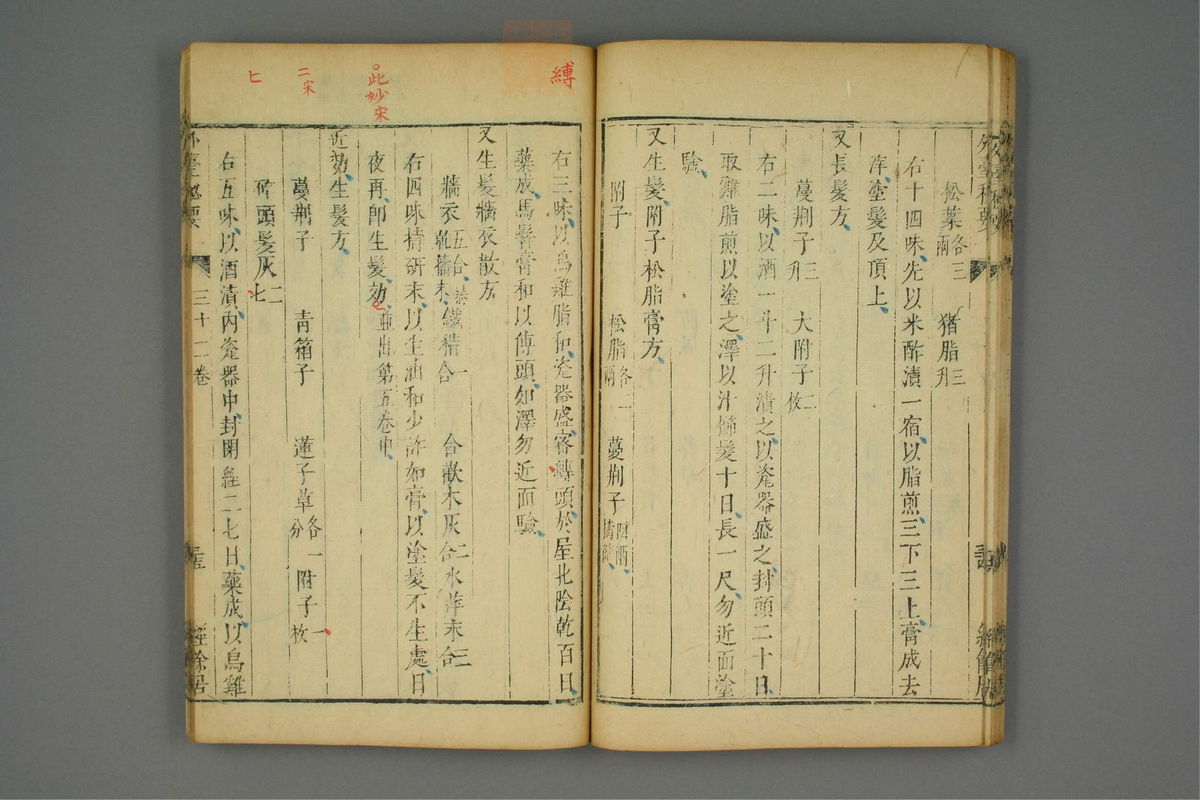 松葉各三兩 猪脂三升
右十四味先以米酢漬一宿以脂煎三下三上膏成去
滓塗髮及頂上
又長髮方
蔓荆子三升 大附子二枚
右二味以酒一斗二升漬之以瓷器盛之封頭二十日
取雞脂煎以塗之澤以汁櫛髮十日長一尺勿近面塗
驗
又生髮附子松脂膏方
附子 松脂各二兩 蔓荆子四兩擣篩
縛
右三味以烏雞脂和瓷器盛密縛頭於屋北陰乾百日
藥成馬鬐膏和以傅頭如澤勿近面驗
又生髮牆衣散方
牆衣五合乾擣末 鐵精一合 合歡木灰二合 水萍末三合
此妙宋
右四味擣研末以生油和少許如膏以塗髮不生處日
夜再即生髮効並出第五卷中
近効生髮方
二宋
蔓荆子 青箱子 蓮子草各一分 附子一枚
七
碎頭髮灰二七
右五味以酒漬內瓷器中封閉經二七日藥成以烏雞
外臺秘要 三十二卷 經餘居